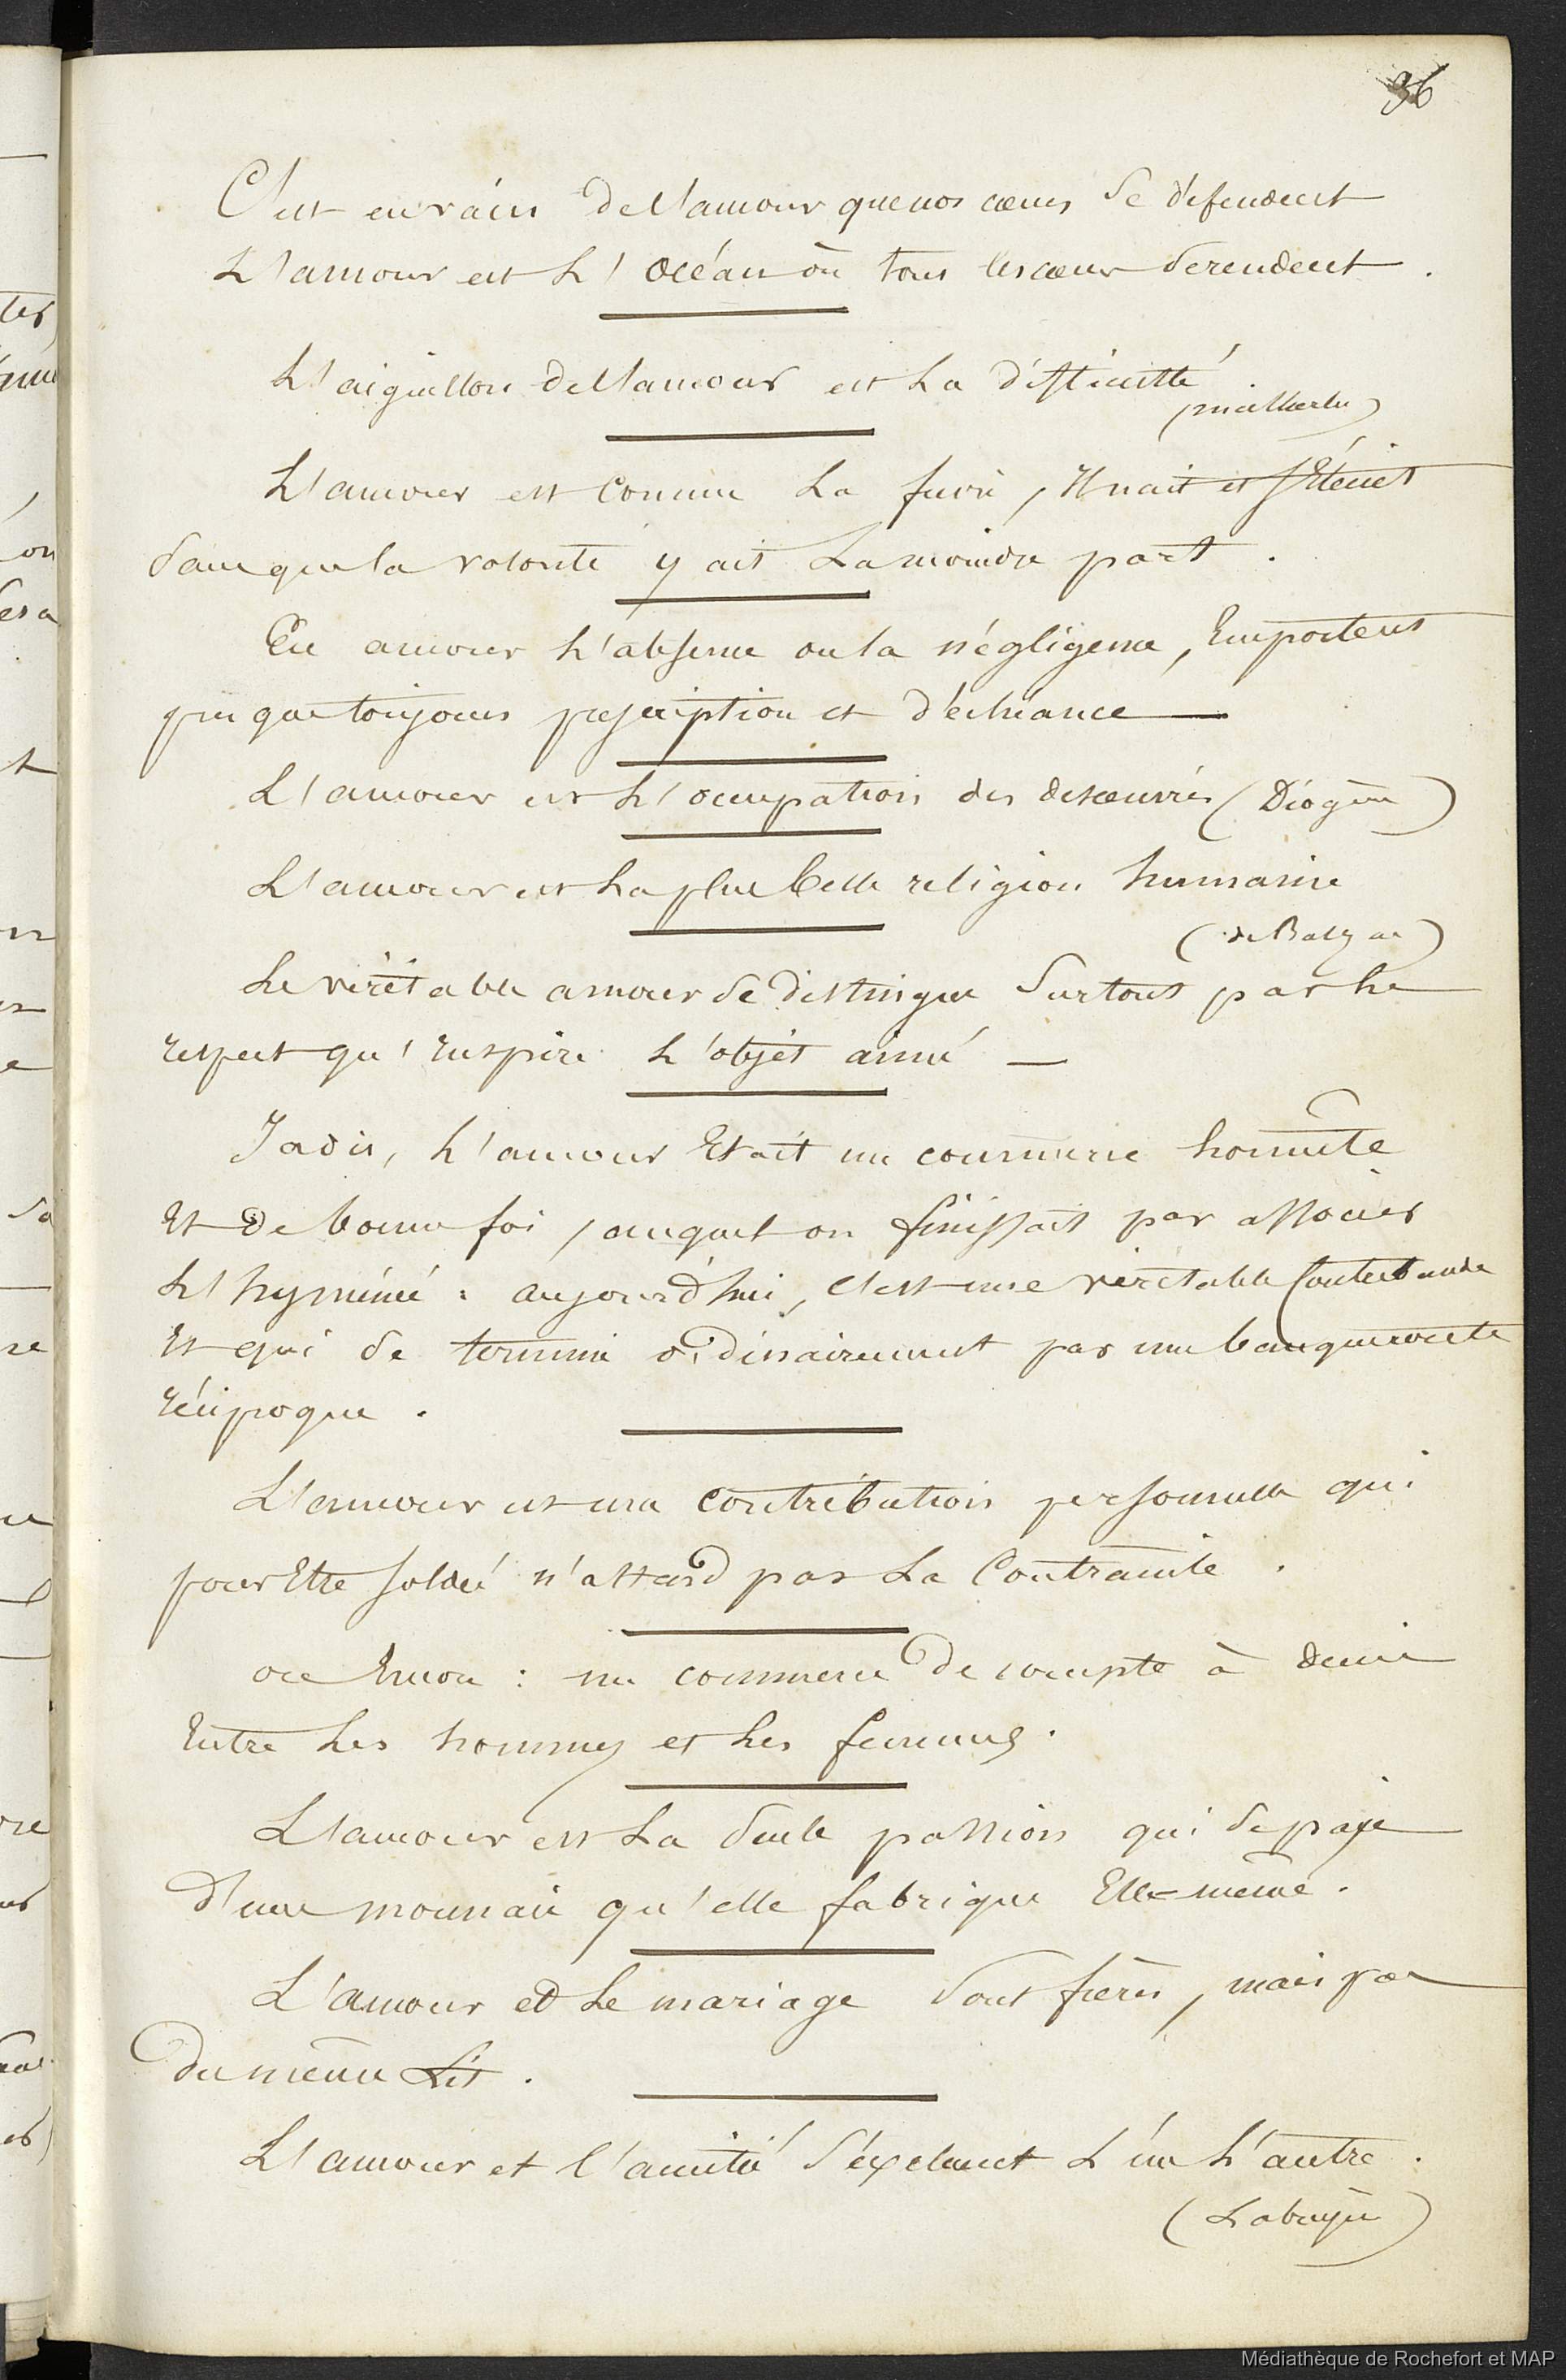 36
C'est en vain de l'amour que nos cœurs se défendent
L'amour est L'Océan où tous les cœur se rendent .
L'aiguillon de l'amour est La difficulté
(malherbe)
L'amour est Comme La fièvre, Il nait et S'Eteint
sans que la volonté y ait La moindre part .
En amour L'absence ou la négligence, Emportent
presque toujours prescription et déchéance —
L'amour est L'occupation des desœuvrés (Diogène)
L'amour est La plus belle religion humaine
(de Balzac)
Le véritable amour se distingue Surtout par Le
respect qu'Inspire L'objet aimé —
Jadis, L'amour Etait un commerce honnête
Et De bonne foi, auquel on finissait par associer
L'hyménée : aujourd'hui, c'est une véritable Contrebande
Et qui se termine ordinairement par une banqueroute
réciproque .
L'amour est une Contribution personnelle qui
pour Etre soldée n'attend pas La Contrainte .
ou Encore : un commerce De compte à demi
Entre Les hommes et Les femmes .
L'amour est La seule passion qui se paye
D'une monnaie qu'elle fabrique Elle-même .
L'amour et Le mariage sont frères, mais pas
Du même Lit .
L'amour et l'amitié s'excluent L'un L'autre .
(Labruyère)
ter
on
era
t
e
sa
re
re
Médiathèque de Rochefort et MAP